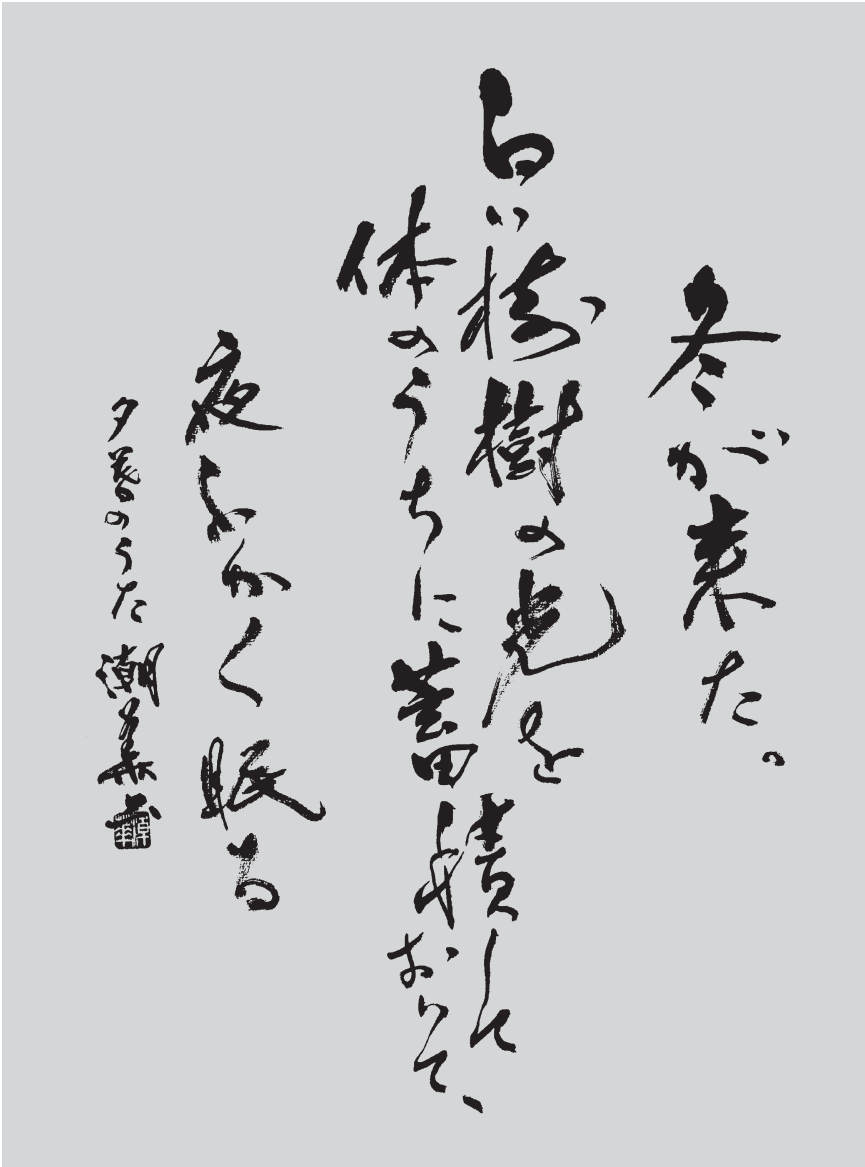 冬が来た。
白い樹樹の光を
体のうちに蓄積しておいて、
夜ふかく眠る
夕暮のうた 潮華